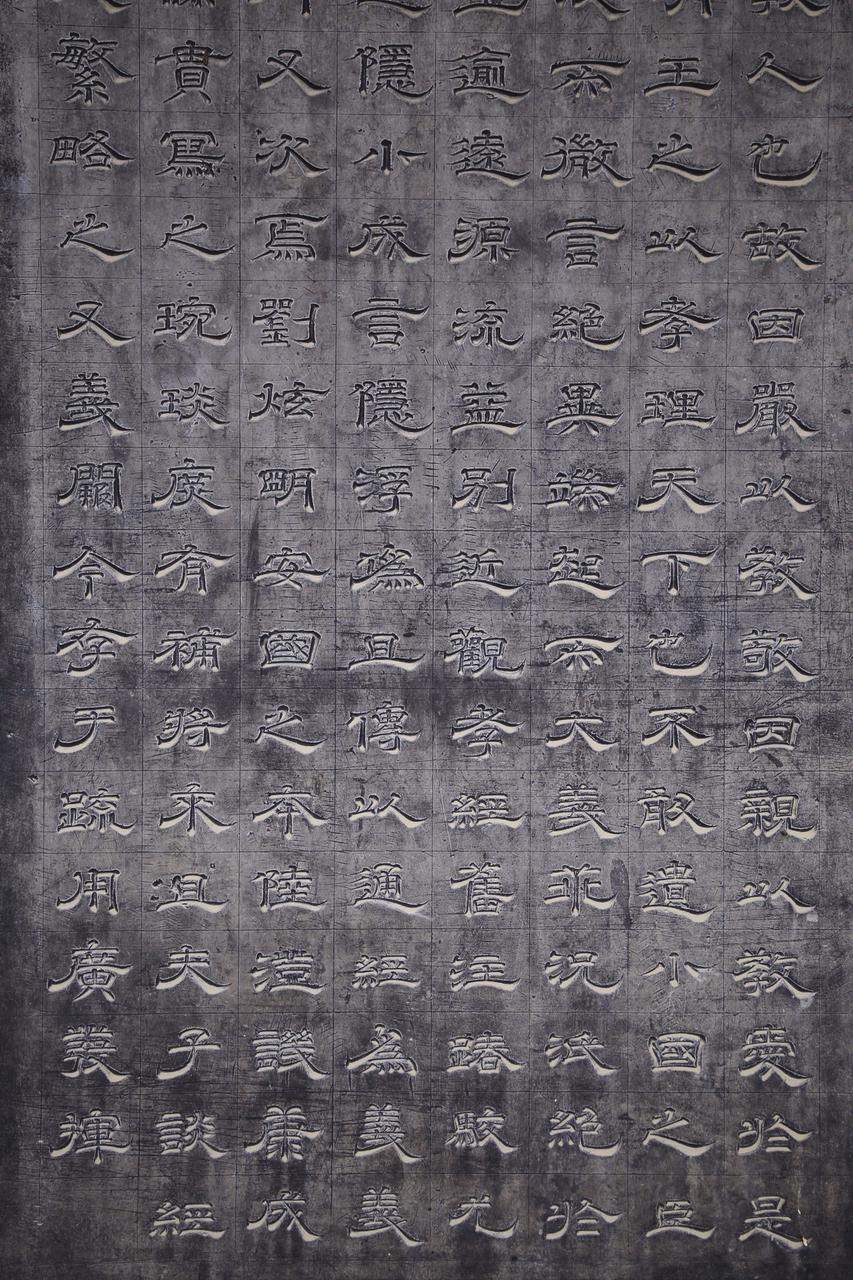 人也故因嚴以教敬因親以教愛於是
王之以孝理天下也不敢遺小國之臣
而微言絕異端起而大義乖況泯絕於
逾遠源流益別近觀孝經舊注踳駮尤
隱小成言隱浮偽且傳以通經為義義
又次焉劉炫明安國之本陸澄譏康成
貴寫之琬琰庶有補將來且夫子談經
繁略之又義闕今存于疏用廣發揮